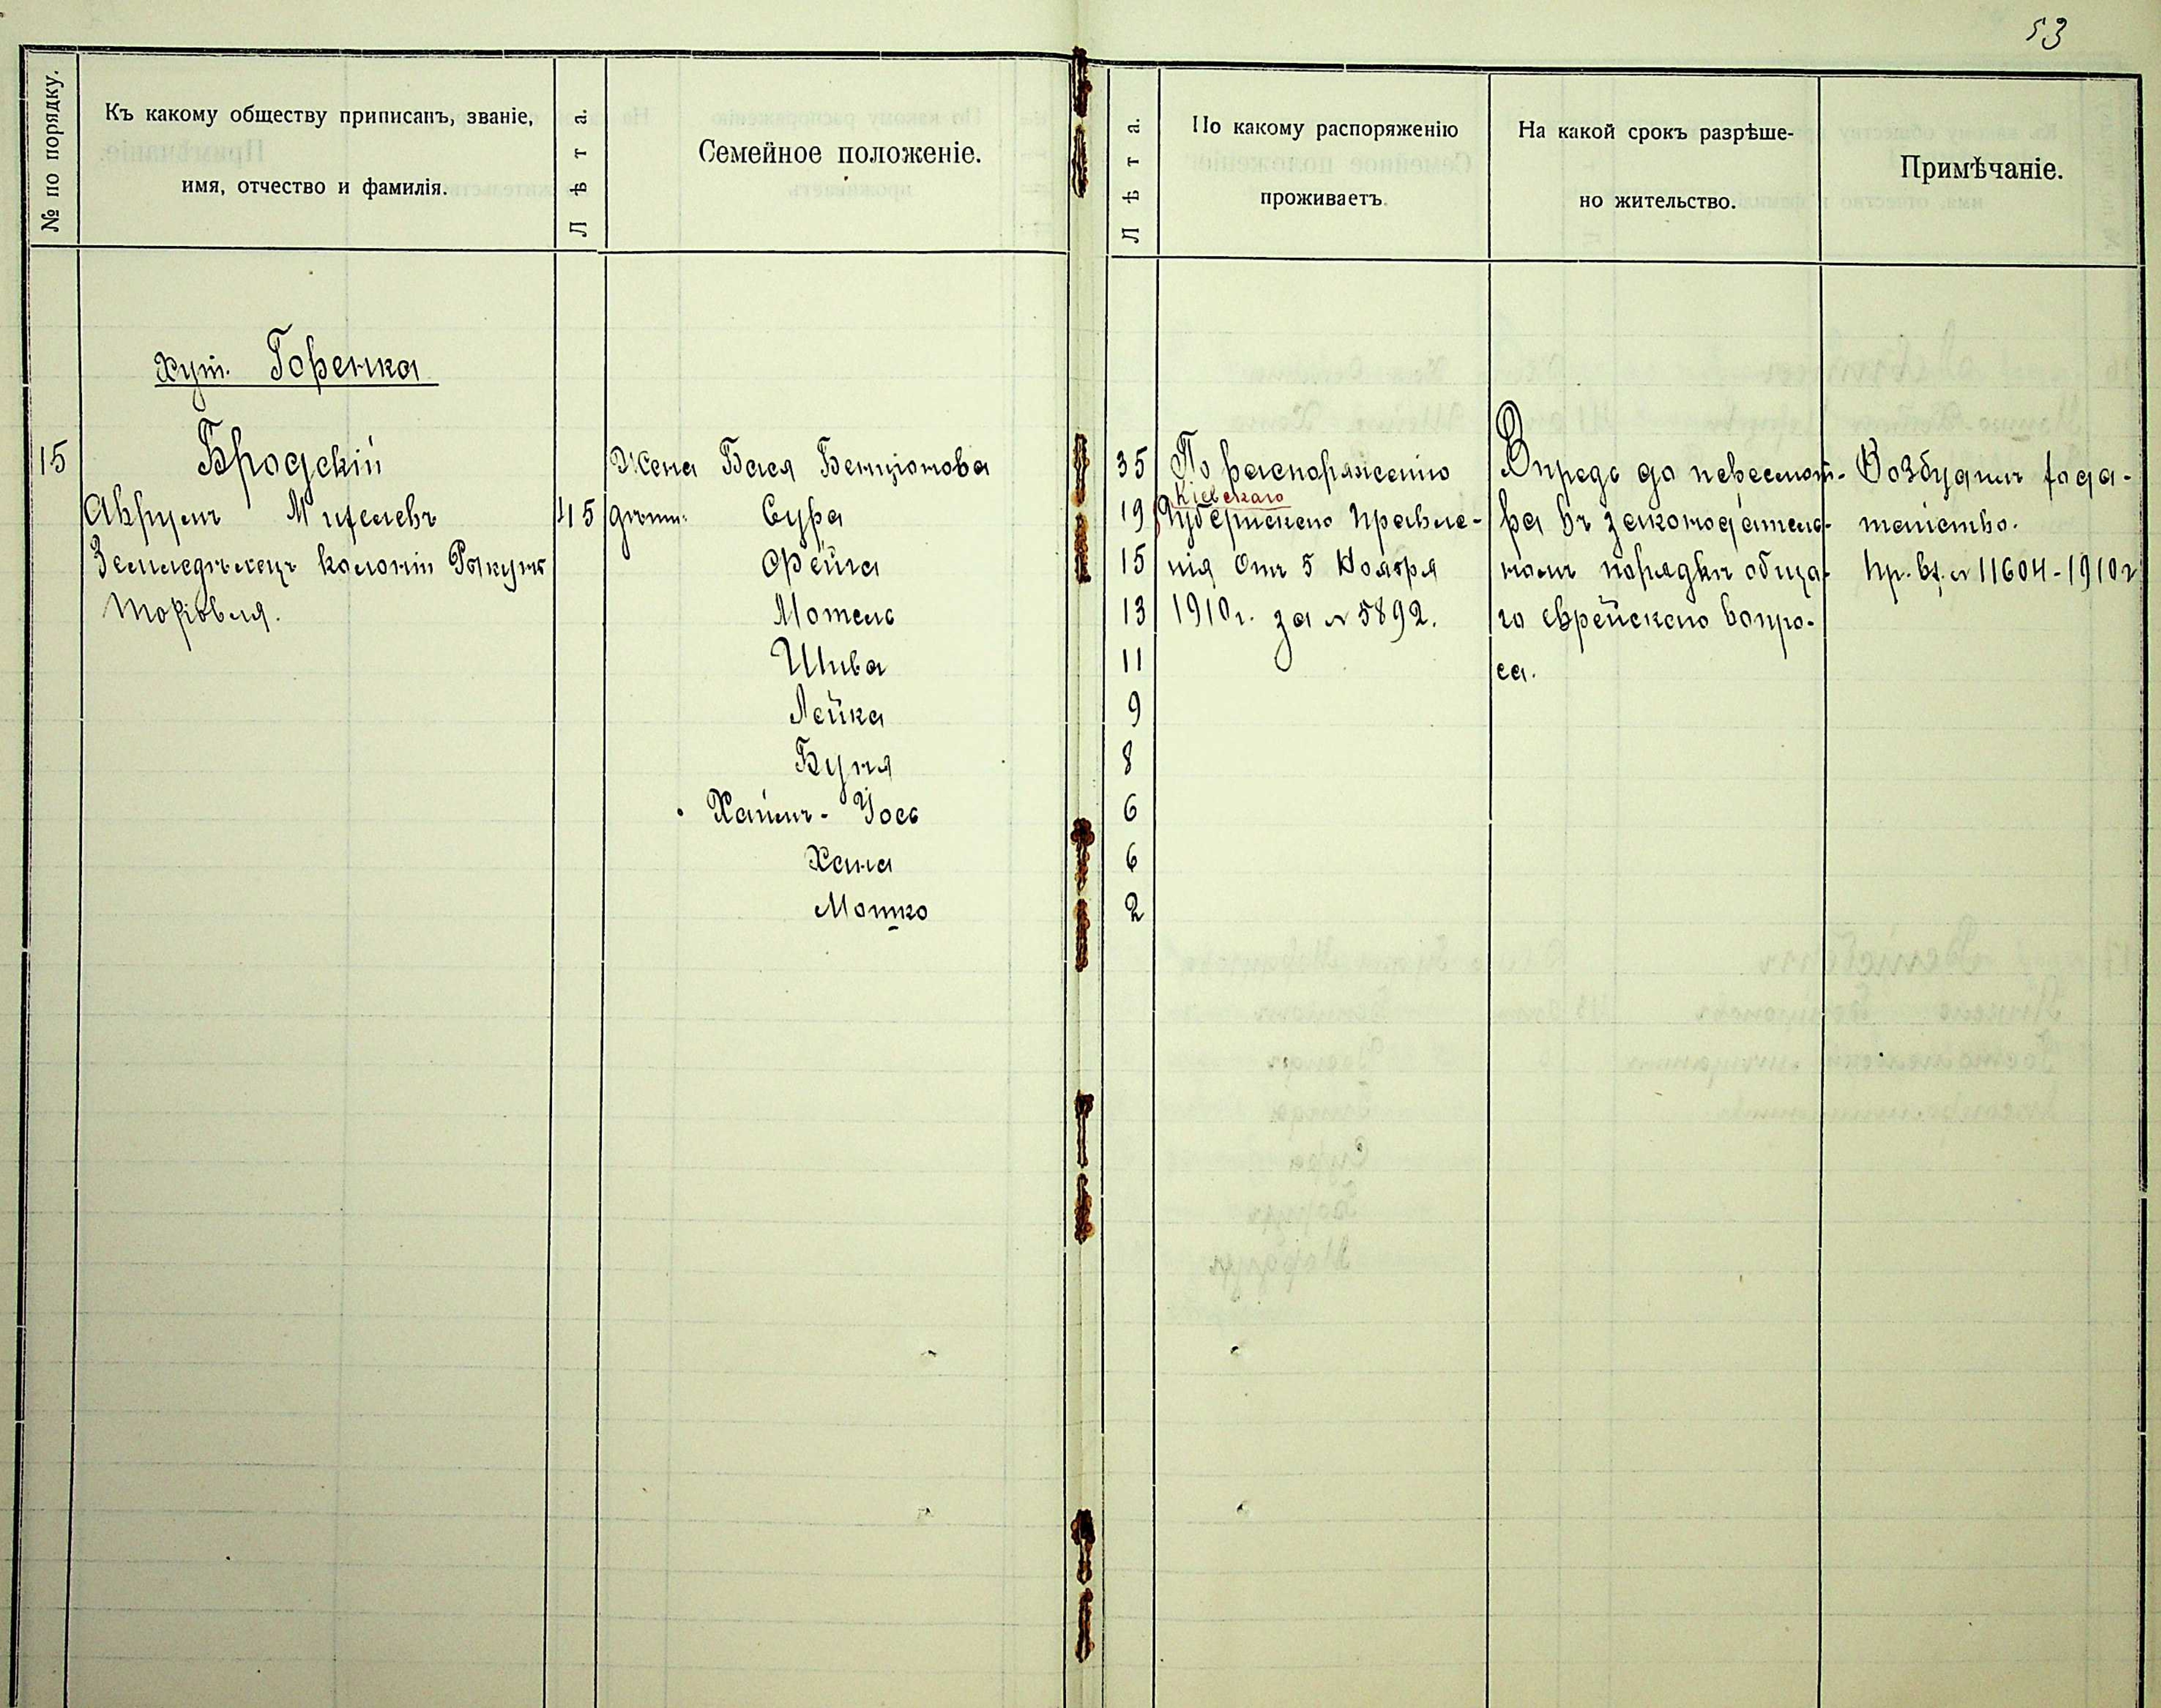 53
№ по порядку.
Къ какому обществу приписанъ, званіе,
имя, отчество и фамилія.
Лѣта.
Семейное положеніе.
Лѣта.
По какому распоряженію
проживаетъ.
На какой срокъ разрѣше-
но жительство.
Примѣчаніе.
хут. Горенка
15
Бродскій
Аврумъ
45
Земледѣлецъ колоніи
Жена Бася Бенціонова 35
дѣти: Сура 19
Фейга 15
Мотель 13
Шива 11
Лейка 9
Буня 8
Хаимъ-Іось 6
Хана 6
Мошко 2
По распоряженію
Кіевскаго
Губернскаго Правле-
нія отъ 5 Ноября
1910 г. за № 5892.
Впредь до пересмот-
ра въ законодатель-
номъ порядкѣ обща-
го еврейскаго вопро-
са.
Возбудилъ хода-
тайство.
№ 11604-1910 г